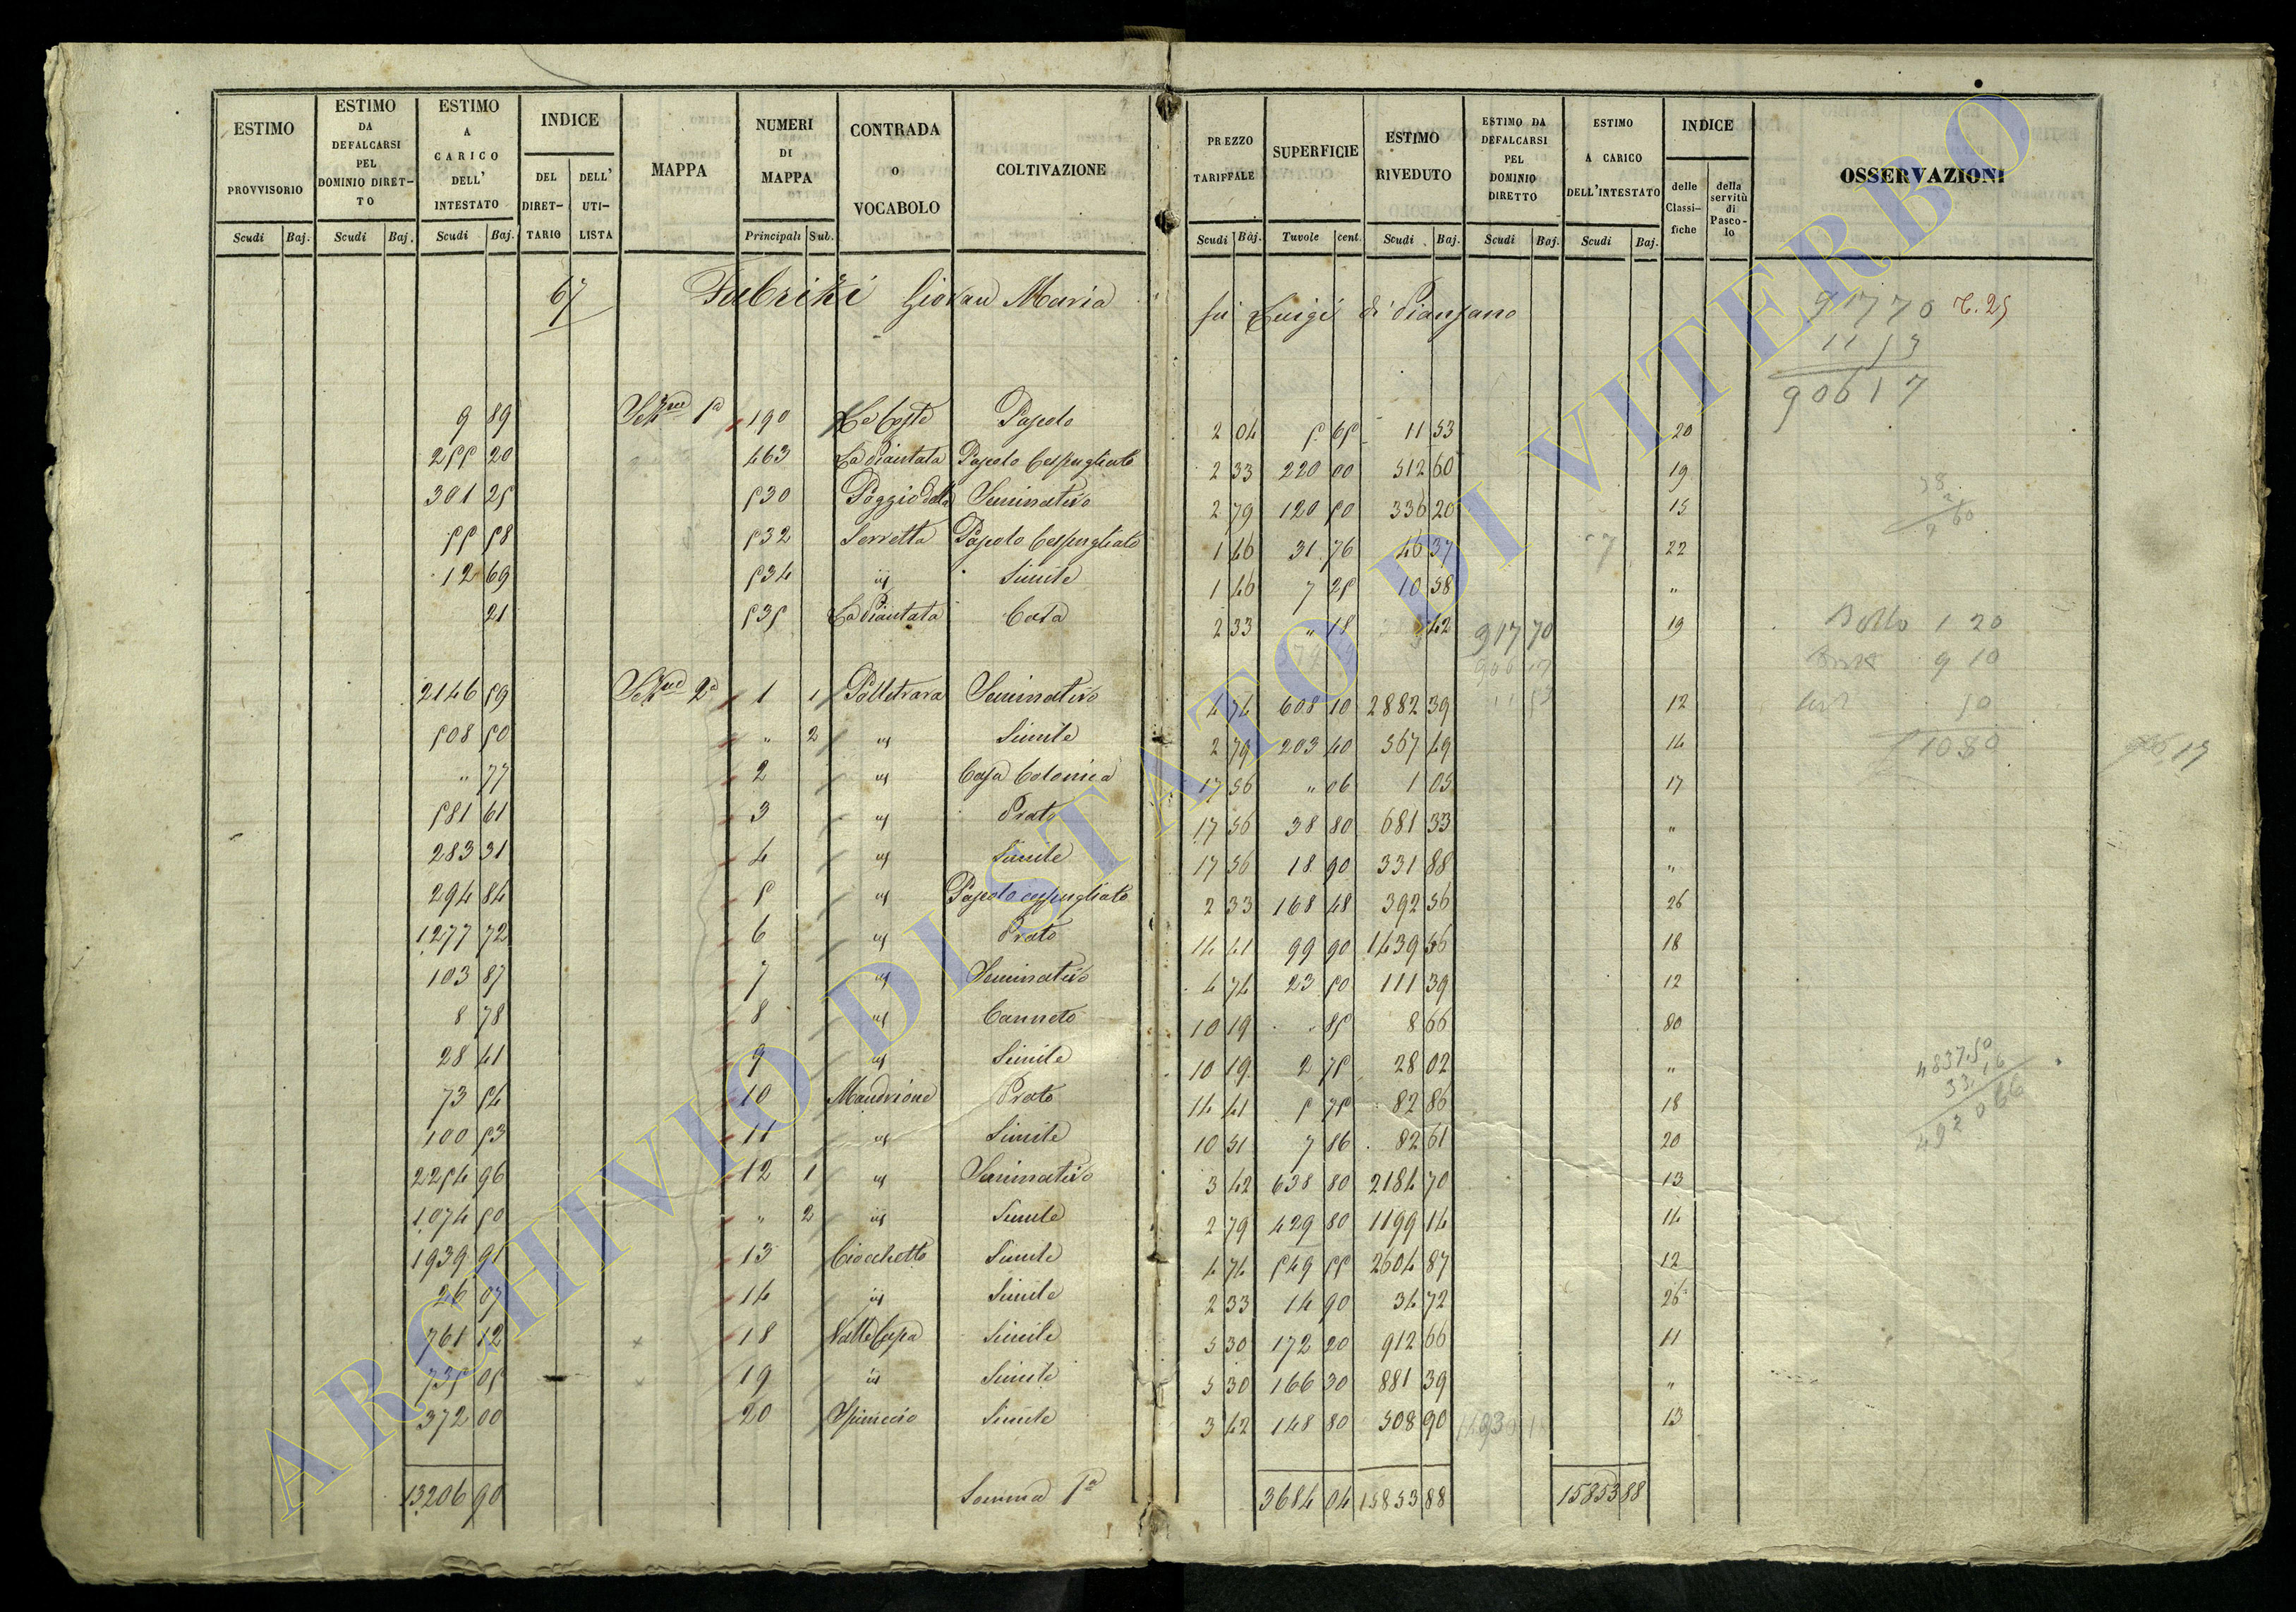 ESTIMO PROVVISORIO Scudi Baj.
ESTIMO DA DEFALCARSI PEL DOMINIO DIRET-TO Scudi Baj.
ESTIMO A CARICO DELL' INTESTATO Scudi Baj.
INDICE DEL DIRET-TARIO DELL' UTI-LISTA
MAPPA
NUMERI DI MAPPA Principali Sub.
CONTRADA o VOCABOLO
COLTIVAZIONE
PREZZO TARIFFALE Scudi Baj.
SUPERFICIE Tavole cent.
ESTIMO RIVEDUTO Scudi Baj.
ESTIMO DA DEFALCARSI PEL DOMINIO DIRETTO Scudi Baj.
ESTIMO A CARICO DELL'INTESTATO Scudi Baj.
INDICE delle Classi-fiche della servitù di Pasco-lo
OSSERVAZIONI
67 Fabrizi Giovan Maria fu Luigi di Pianzano
91770
1153
90617
9 89 Sez.ne Pa 190 Le Coste Pascolo 2 04 5 65 11 53 20
255 20 463 La Piantata Pascolo Cespugliato 2 33 220 00 512 60 19
301 25 530 Poggio della Seminativo 2 79 120 50 336 20 15
55 58 532 Serretta Pascolo Cespugliato 1 46 31 76 46 37 22
12 69 534 id Simile 1 46 7 25 10 58 "
21 535 La Piantata Casa 2 33 " 18 42 917 70 19
Bollo 1 20
9 10
50
1080
2146 59 Sez.ne 2a 1 1 Polletrara Seminativo 4 74 608 10 2882 39 12
508 50 " 2 id Simile 2 79 203 40 567 49 14
" 77 2 id Casa Colonica 17 56 " 06 1 05 17
581 61 3 id Prato 17 56 38 80 681 33 "
283 31 4 id Simile 17 56 18 90 331 88 "
294 84 5 id Pascolo cespugliato 2 33 168 48 392 56 26
1277 72 6 id Prato 14 41 99 90 1439 56 18
103 87 7 id Seminativo 4 74 23 50 111 39 12
8 78 8 id Canneto 10 19 85 8 66 80
28 41 9 id Simile 10 19 2 75 28 02 "
73 54 10 Mandrione Prato 14 41 5 75 82 86 18
100 53 11 id Simile 10 51 7 86 82 61 20
2254 96 12 1 id Seminativo 3 42 638 80 2184 70 13
1074 50 " 2 id Simile 2 79 429 80 1199 14 14
1939 91 13 Ciocchetto Simile 4 74 549 55 2604 87 12
26 07 14 id Simile 2 33 14 90 34 72 26
761 12 18 Valle Cupa Simile 5 30 172 20 912 66 11
735 05 19 id Simile 5 30 166 30 881 39 "
372 00 20 Spinuccio Simile 3 42 148 80 508 90 13
13206 90 Somma Pa 3684 04 15853 88 15853 88
ARCHIVIO DI STATO DI VITERBO